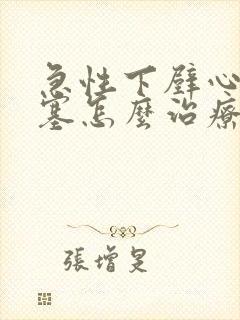 急性下壁心
塞怎麼治療
張增旻